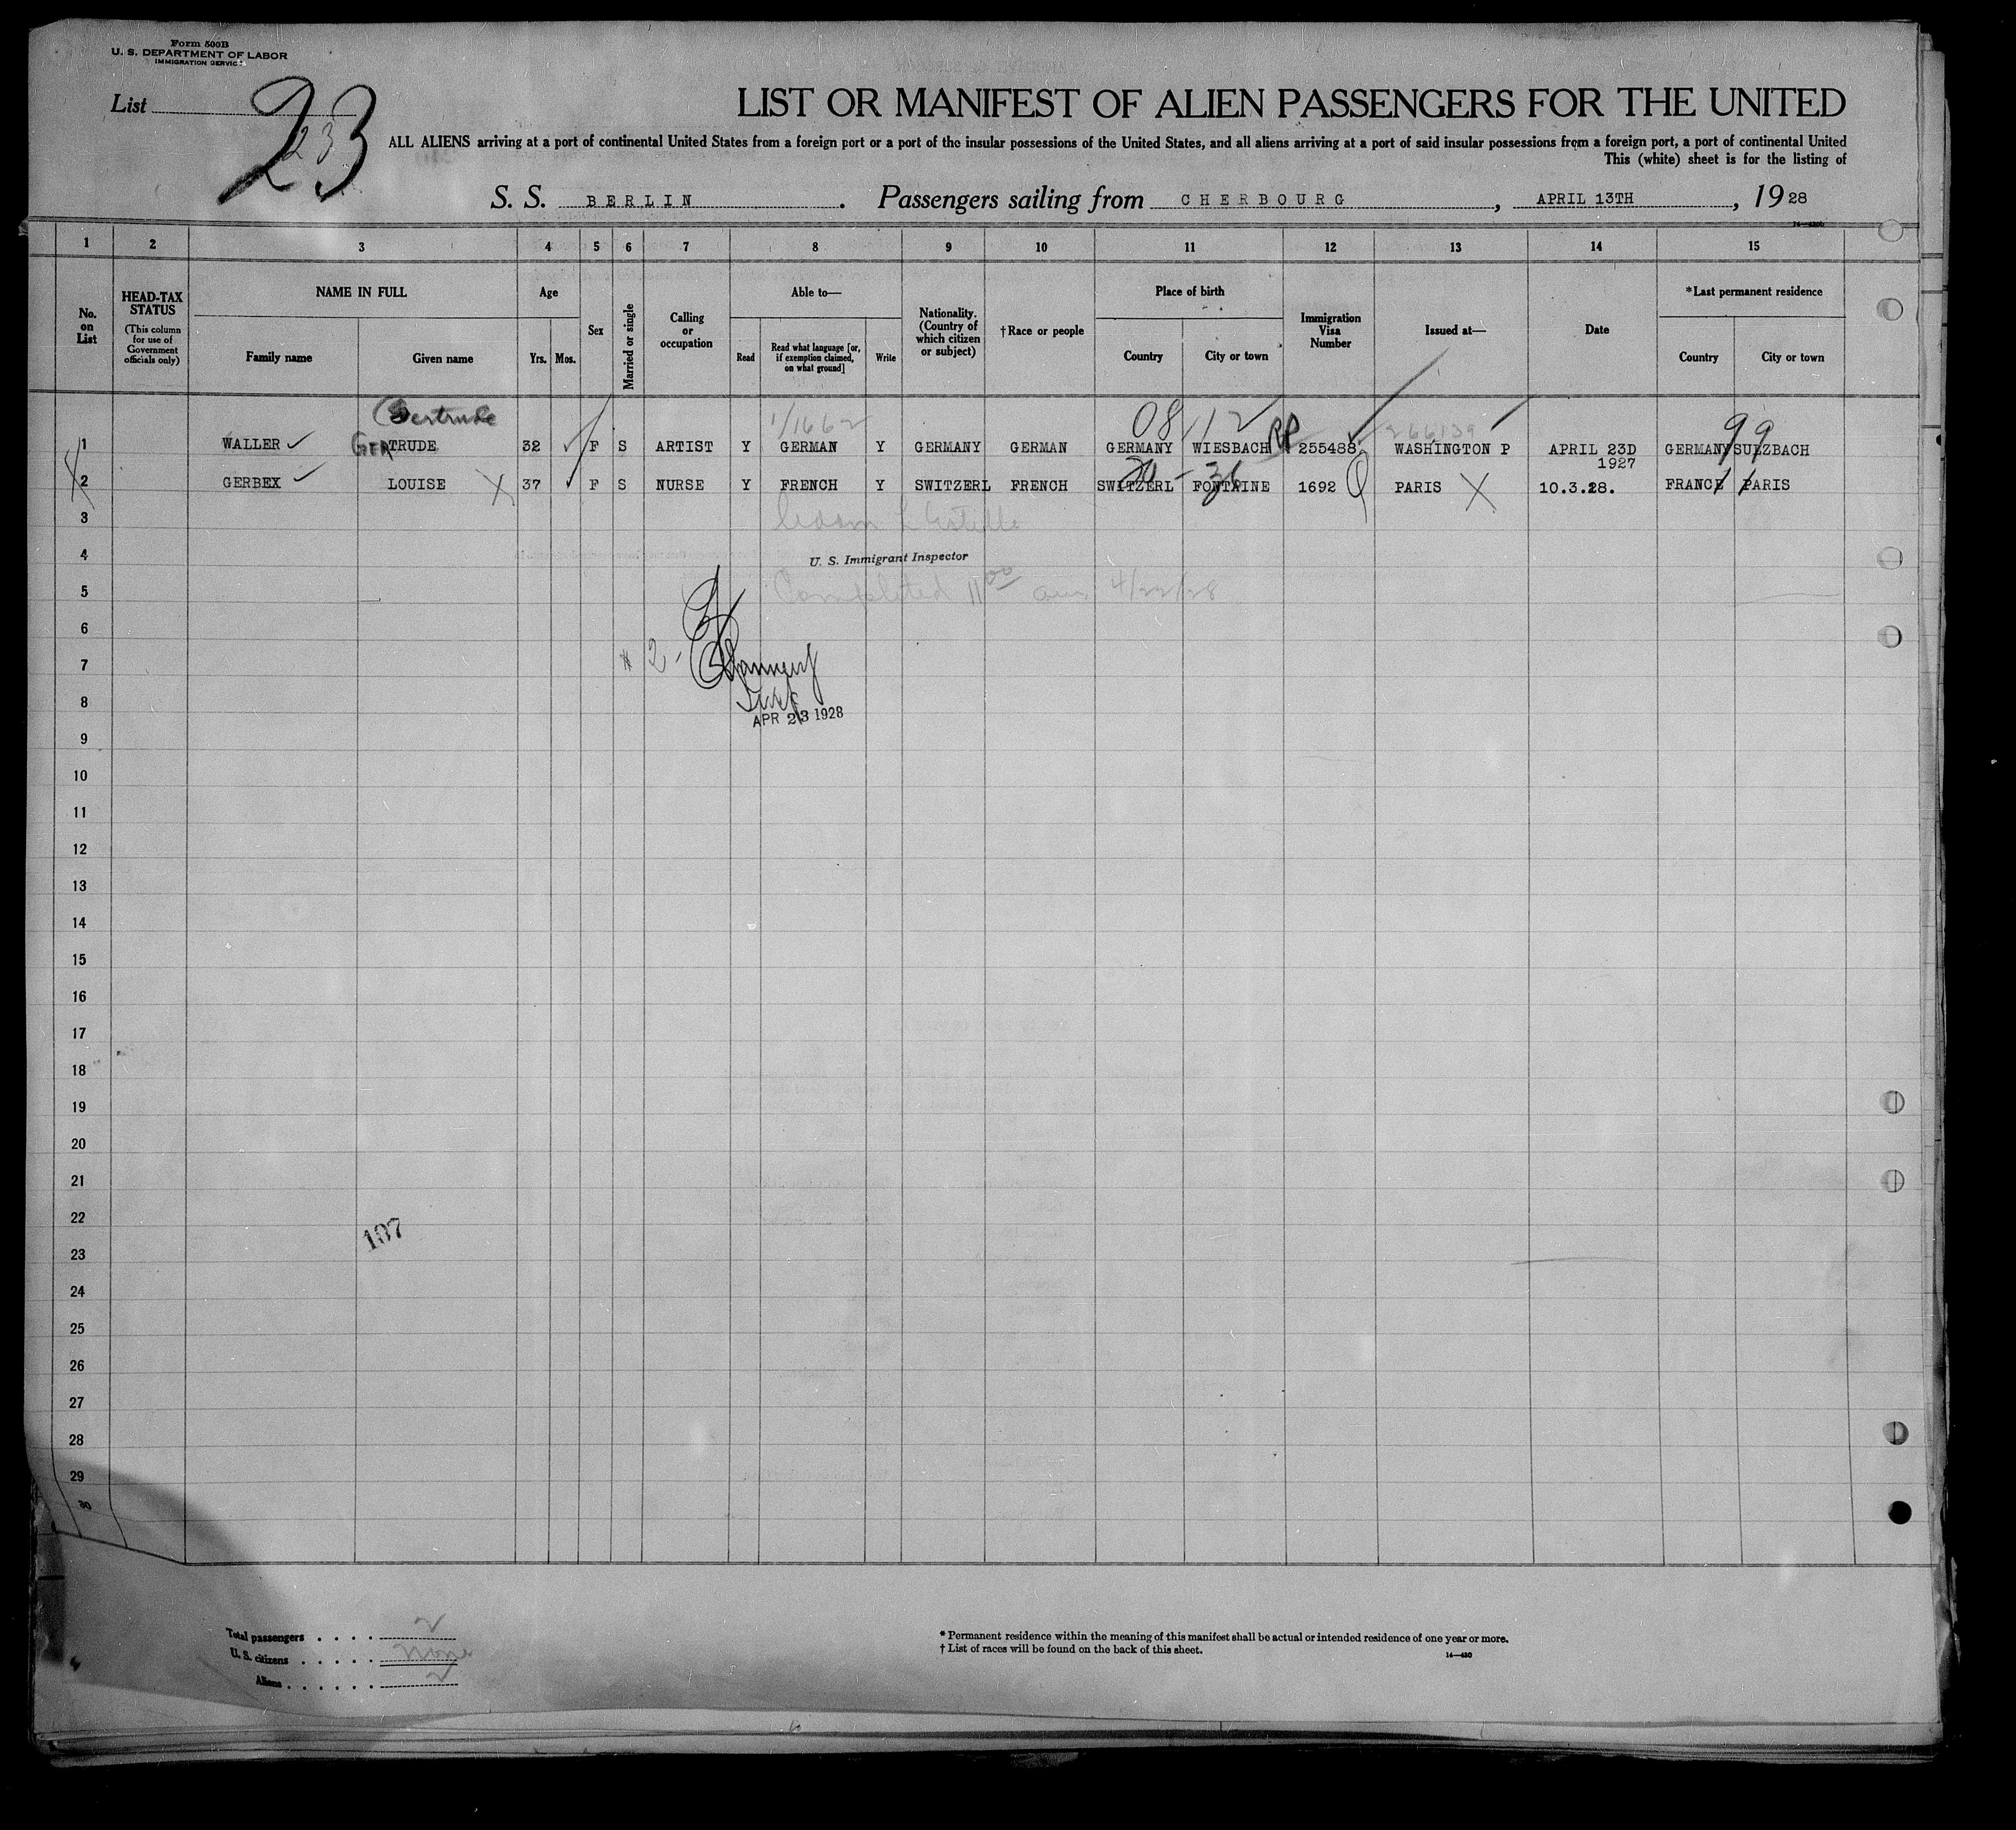 Form 500B
U. S. DEPARTMENT OF LABOR
IMMIGRATION SERVICE
List 23
23
LIST OR MANIFEST OF ALIEN PASSENGERS FOR THE UNITED
ALL ALIENS arriving at a port of continental United States from a foreign port or a port of the insular possessions of the United States, and all aliens arriving at a port of said insular possessions from a foreign port, a port of continental United
This (white) sheet is for the listing of
S. S. BERLIN . Passengers sailing from CHERBOURG , APRIL 13TH , 1928
1 2 3 4 5 6 7 8 9 10 11 12 13 14 15
No. on List
HEAD-TAX STATUS
(This column for use of Government officials only)
NAME IN FULL
Family name
Given name
Age
Yrs. Mos.
Sex
Married or single
Calling or occupation
Able to—
Read
Read what language [or, if exemption claimed, on what ground]
Write
Nationality. (Country of which citizen or subject)
†Race or people
Place of birth
Country
City or town
Immigration Visa Number
Issued at—
Date
*Last permanent residence
Country
City or town
Gertrude
1/1662
08 112
99
266139
1 WALLER GERTRUDE 32 F S ARTIST Y GERMAN Y GERMANY GERMAN GERMANY WIESBACH RP 255488 WASHINGTON P APRIL 23D 1927 GERMANY SULZBACH
20 - 36
2 GERBEX LOUISE 37 F S NURSE Y FRENCH Y SWITZERL FRENCH SWITZERL FONTAINE 1692 PARIS 10.3.28. FRANCE PARIS
3
4 U. S. Immigrant Inspector
5 Completed 11 00 am 4/22/28
6
7 2 -
8
APR 23 1928
9
10
11
12
13
14
15
16
17
18
19
20
21
22
107
23
24
25
26
27
28
29
30
Total passengers . . . . 2
U. S. citizens . . . . . none
Aliens . . . . . . 2
* Permanent residence within the meaning of this manifest shall be actual or intended residence of one year or more.
† List of races will be found on the back of this sheet.
14—430